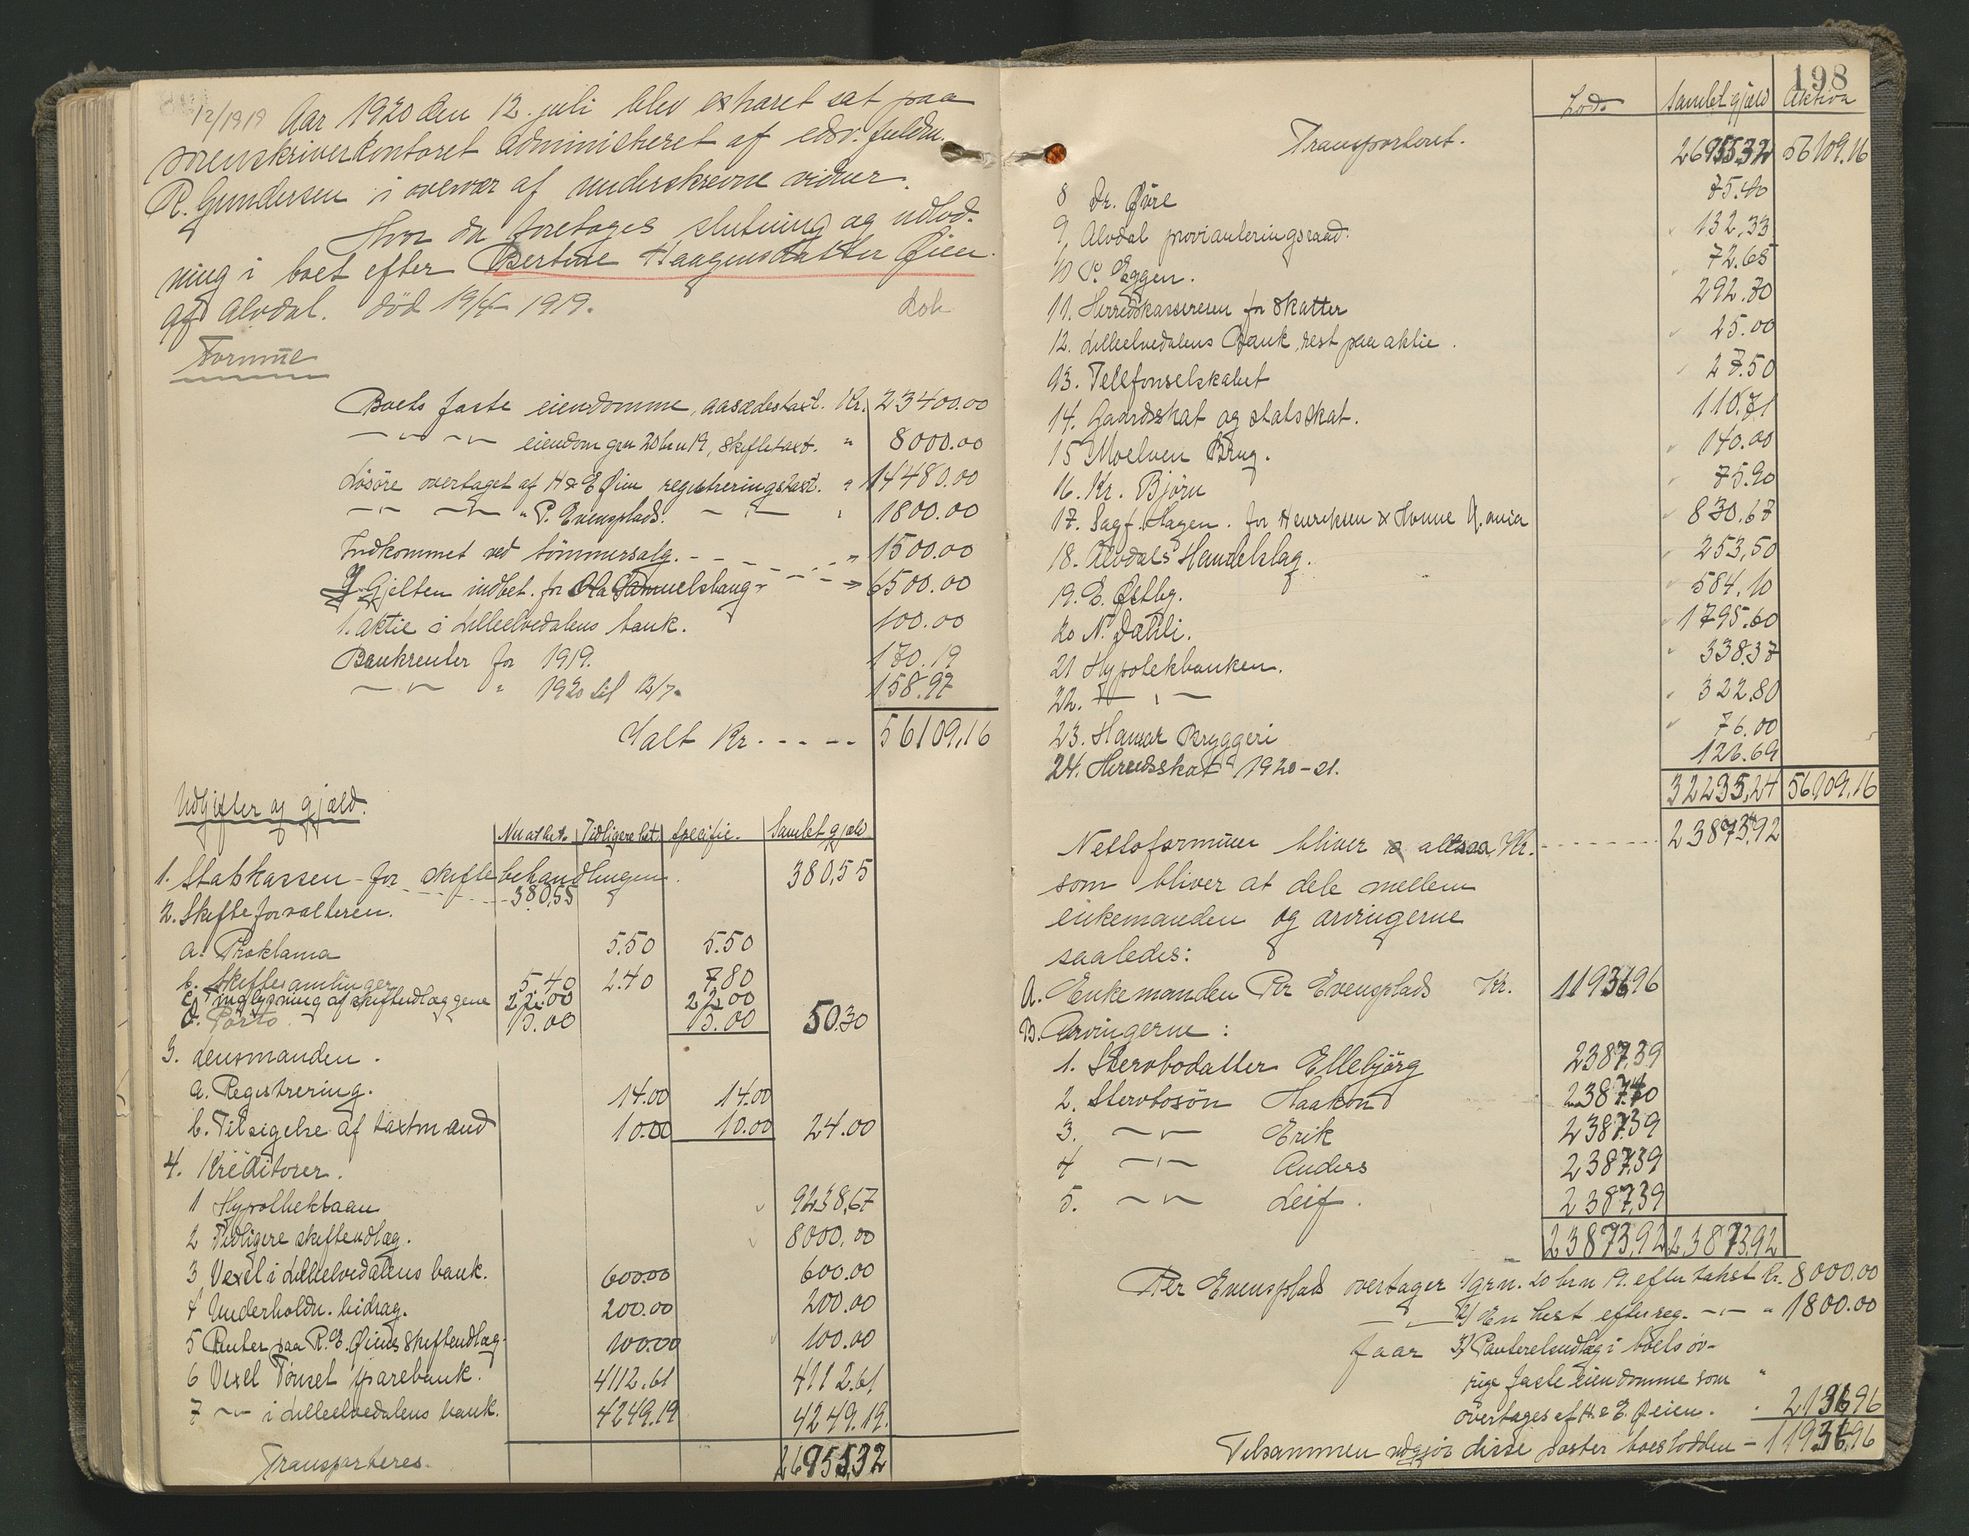 12/1919 Aar 1920 den 12. juli blev exharet sat paa
sorenskriverkontoret administreret af edsv. fuldm.
R. Gundersen i overvær af underskrevne vidner.
Hvor da foretoges slutning og udlod-
ning i boet efter Bertine Haagensdatter Øien.
af Alvdal. död 19/4 1919.
Formue
Boets faste eiendomme, aasædestaxt. Kr. 23400.00
eiendom grn 20 brn 19, skiftetaxt. " 8000.00
Lösöre overtaget af H & E Øien registreringstaxt. " 14480.00
" P. Evensplads. " 1800.00
Indkommet ved tömmersalg. " 1500.00
Gjelten indbet. for Ola Samuelshaug " 6500.00
1. aktie i Lilleelvedalens bank. 100.00
Bankrenter for 1919. 170.19
" 1920 til 12/7. 158.97
Ialt Kr. 56109,16
Udgifter og gjæld.
Nu at bet. Tidligere bet. Specific. Samlet gjæld
1. Statskassen for skiftebehandlingen. 380,55
380,55
2. Skifteforvalteren.
a. Proklama 5.50 5.50
b. Skiftesamlinger 5.40 2.40 7.80
c. Tinglysning af skifteudlæggene 22.00 22.00
d. Porto 15.00 15.00 50.30
3. Lensmanden.
a. Registrering. 14.00 14.00
b. Tilsigelse af taxtmænd 10.00 10.00 24.00
4. Kreditorer.
1 Hypotheklaan 9238,67
2 Tidligere skifteudlæg. 8000.00
3 Vexel i Lilleelvedalens bank. 600.00 600.00
4 Underholdn. bidrag. 200.00 200.00
5 Renter paa R. E. Øiens skifteudlæg. 100.00 100.00
6 Vexel Tönset sparebank. 4112.61 4112.61
7 i Lilleelvedalens bank. 4249.19 4249.19.
Transporteres. 26955,32
198
Lod. Samlet gjæld Aktiva
Transporteret. 26955,32 56109.16
8 Dr. Øvre 75.40
9, Alvdal provianteringsraad. 132,33
10 P. Eggen. 72.65
11. Herredskassereren for skatter 292.70
12. Lilleelvedalens Bank, rest paa aktie. 25.00
13. Telefonselskabet 27.50
14. Gaardskat og statsskat. 110.71
15 Moelven Brug. 140.00
16. Kr. Björn 75.90
17. Sagf. Hagen. for Henriksen & Honne Q. ania 830.67
18. Alvdals Handelslag. 253,50
19. E. Østby. 584.10
20 N. Dahli. 1795.60
21 Hypotekbanken. 338.37
22. 322.80
23. Hamar Bryggeri 76.00
24. Herredsskat 1920-21. 126.69
32235,24 56109.16
Nettoformuen bliver altsaa Kr. 23873,92
som bliver at dele mellem
enkemanden og arvingerne
saaledes:
A. Enkemanden Per Evensplads Kr. 11936.96
B. Arvingerne:
1. Stervbodatter Ellebjörg 2387,39
2. Stervbosön Haakon 2387.40
3. Erik 2387.39
4 Anders 2387.39
5. Leif. 2387.39
23873,92 23873,92
Per Evensplads overtager 1) grn. 20 brn 19. efter takst Kr. 8000.00
2) En hest efter reg. " 1800.00
faar 3) Panteretsudlæg i boets öv-
rige faste eiendomme som
overtages af H. & E. Øien. 2136.96
Tilsammen udgjör disse poster boeslodden 11936.96